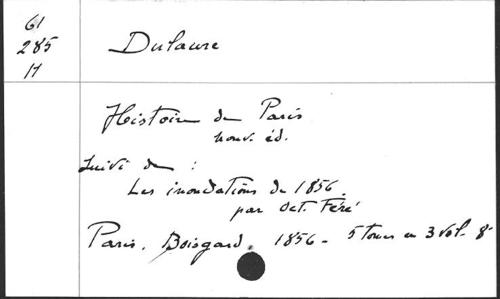 61
285
17
Dulaure
Histoire de Paris
nouv. éd.
Suivi de :
Les inondations de 1856.
par Oct. Féré
Paris. Boisgard. 1856 - 5 tomes en 3 vol. 8°